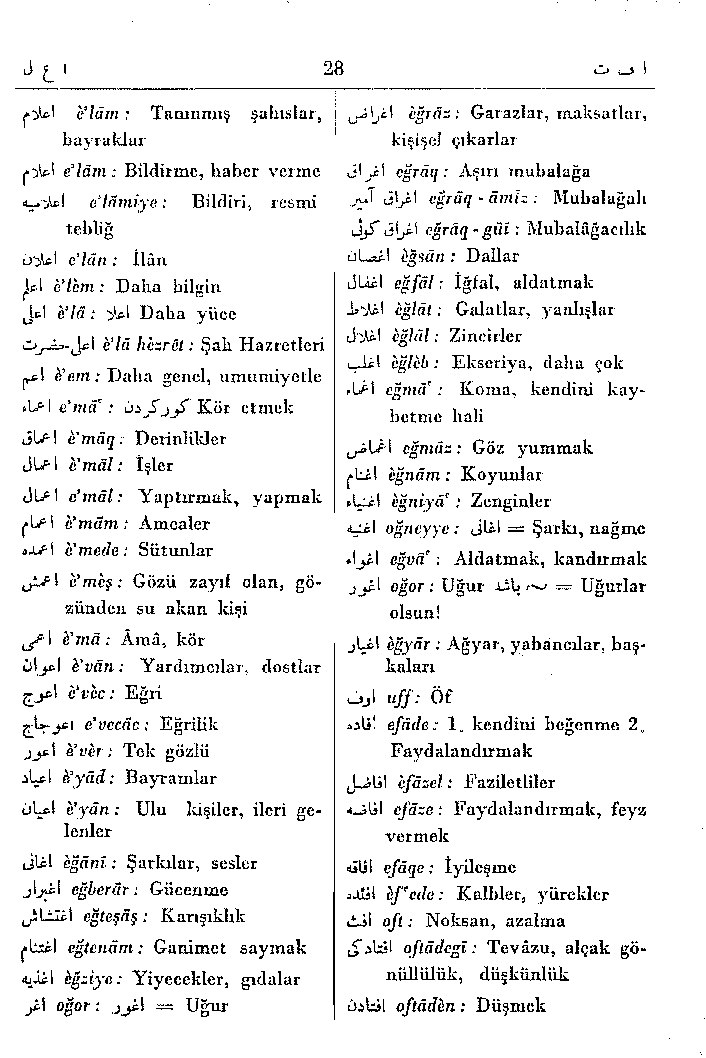 ا ع ل
28
ا ف ت
اعلام è'lām : Tanınmış şahıslar,
bayraklar
اعلام e'lām : Bildirme, haber verme
اعلاميه e'lāmiye : Bildiri, resmi
tebliğ
اعلان e'lān : İlân
اعلم è'lèm : Daha bilgin
اعلى è'lā : اعلا Daha yüce
اعلى‌حضرت è'lā hèzrèt : Şah Hazretleri
اعم è'em : Daha genel, umumiyetle
اعماء e'mā' : كوركردن Kör etmek
اعماق è'māq : Derinlikler
اعمال è'māl : İşler
اعمال e'māl : Yaptırmak, yapmak
اعمام è'mām : Amcalar
اعمده è'mede : Sütunlar
اعمش è'mèş : Gözü zayıf olan, gö-
zünden su akan kişi
اعمى è'mā : Âmâ, kör
اعوان è'vān : Yardımcılar, dostlar
اعوج è'vèc : Eğri
اعوجاج e'vecāc : Eğrilik
اعور è'vèr : Tek gözlü
اعياد è'yād : Bayramlar
اعيان è'yān : Ulu kişiler, ileri ge-
lenler
اغانى èğānī : Şarkılar, sesler
اغبرار eğberār : Gücenme
اغتشاش eğteşāş : Karışıklık
اغتنام eğtenām : Ganimet saymak
اغذيه èğziye : Yiyecekler, gıdalar
اغر oğor : اغور = Uğur
اغراض èğrāz : Garazlar, maksatlar,
kişisel çıkarlar
اغراق eğrāq : Aşırı mubalağa
اغراق آميز eğrāq - āmīz : Mubalağalı
اغراق گوئى eğrāq - gūī : Mubalâğacılık
اغصان èğsān : Dallar
اغفال eğfāl : İğfal, aldatmak
اغلاط èğlāt : Galatlar, yanlışlar
اغلال èğlāl : Zincirler
اغلب èğlèb : Ekseriya, daha çok
اغماء eğmā' : Koma, kendini kay-
betme hali
اغماض eğmāz : Göz yummak
اغنام èğnām : Koyunlar
اغنياء èğniyā' : Zenginler
اغنيه oğneyye : اغانى = Şarkı, nağme
اغواء eğvā' : Aldatmak, kandırmak
اغور oğor : Uğur باشد = Uğurlar
olsun!
اغيار èğyār : Ağyar, yabancılar, baş-
kaları
اوف uff : Öf
افاده efāde : 1. kendini beğenme 2.
Faydalandırmak
افاضل èfāzel : Faziletliler
افاضه efāze : Faydalandırmak, feyz
vermek
افاقه efāqe : İyileşme
افئده èf'ede : Kalbler, yürekler
افت oft : Noksan, azalma
افتادگى oftādegī : Tevâzu, alçak gö-
nüllülük, düşkünlük
افتادن oftādèn : Düşmek